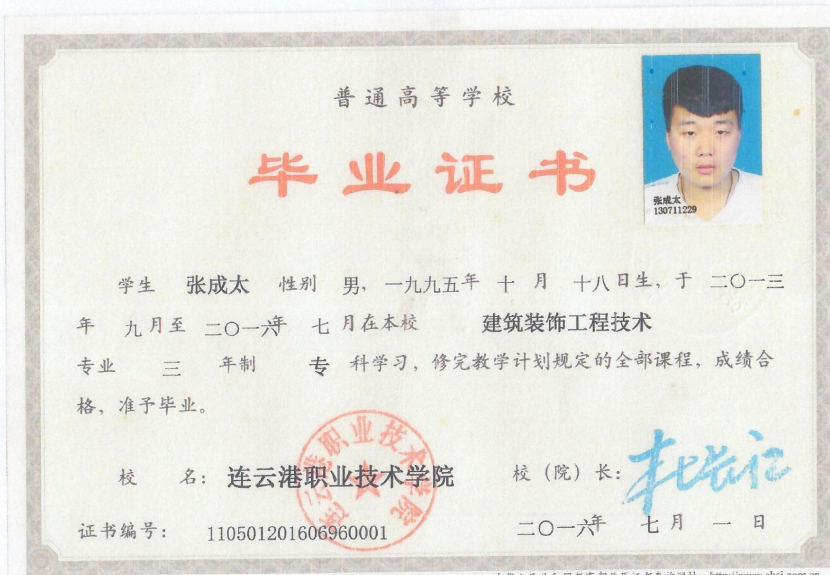 普通高等学校
毕业证书
张成太
130711229
学生 张成太 性别 男，一九九五年 十 月 十八日生，于 二〇一三
年 九月至 二〇一六年 七月在本校 建筑装饰工程技术
专业 三 年制 专 科学习，修完教学计划规定的全部课程，成绩合
格，准予毕业。
连云港职业技术学院
校 名：连云港职业技术学院 校（院）长：
证书编号：110501201606960001 二〇一六年 七月 一 日